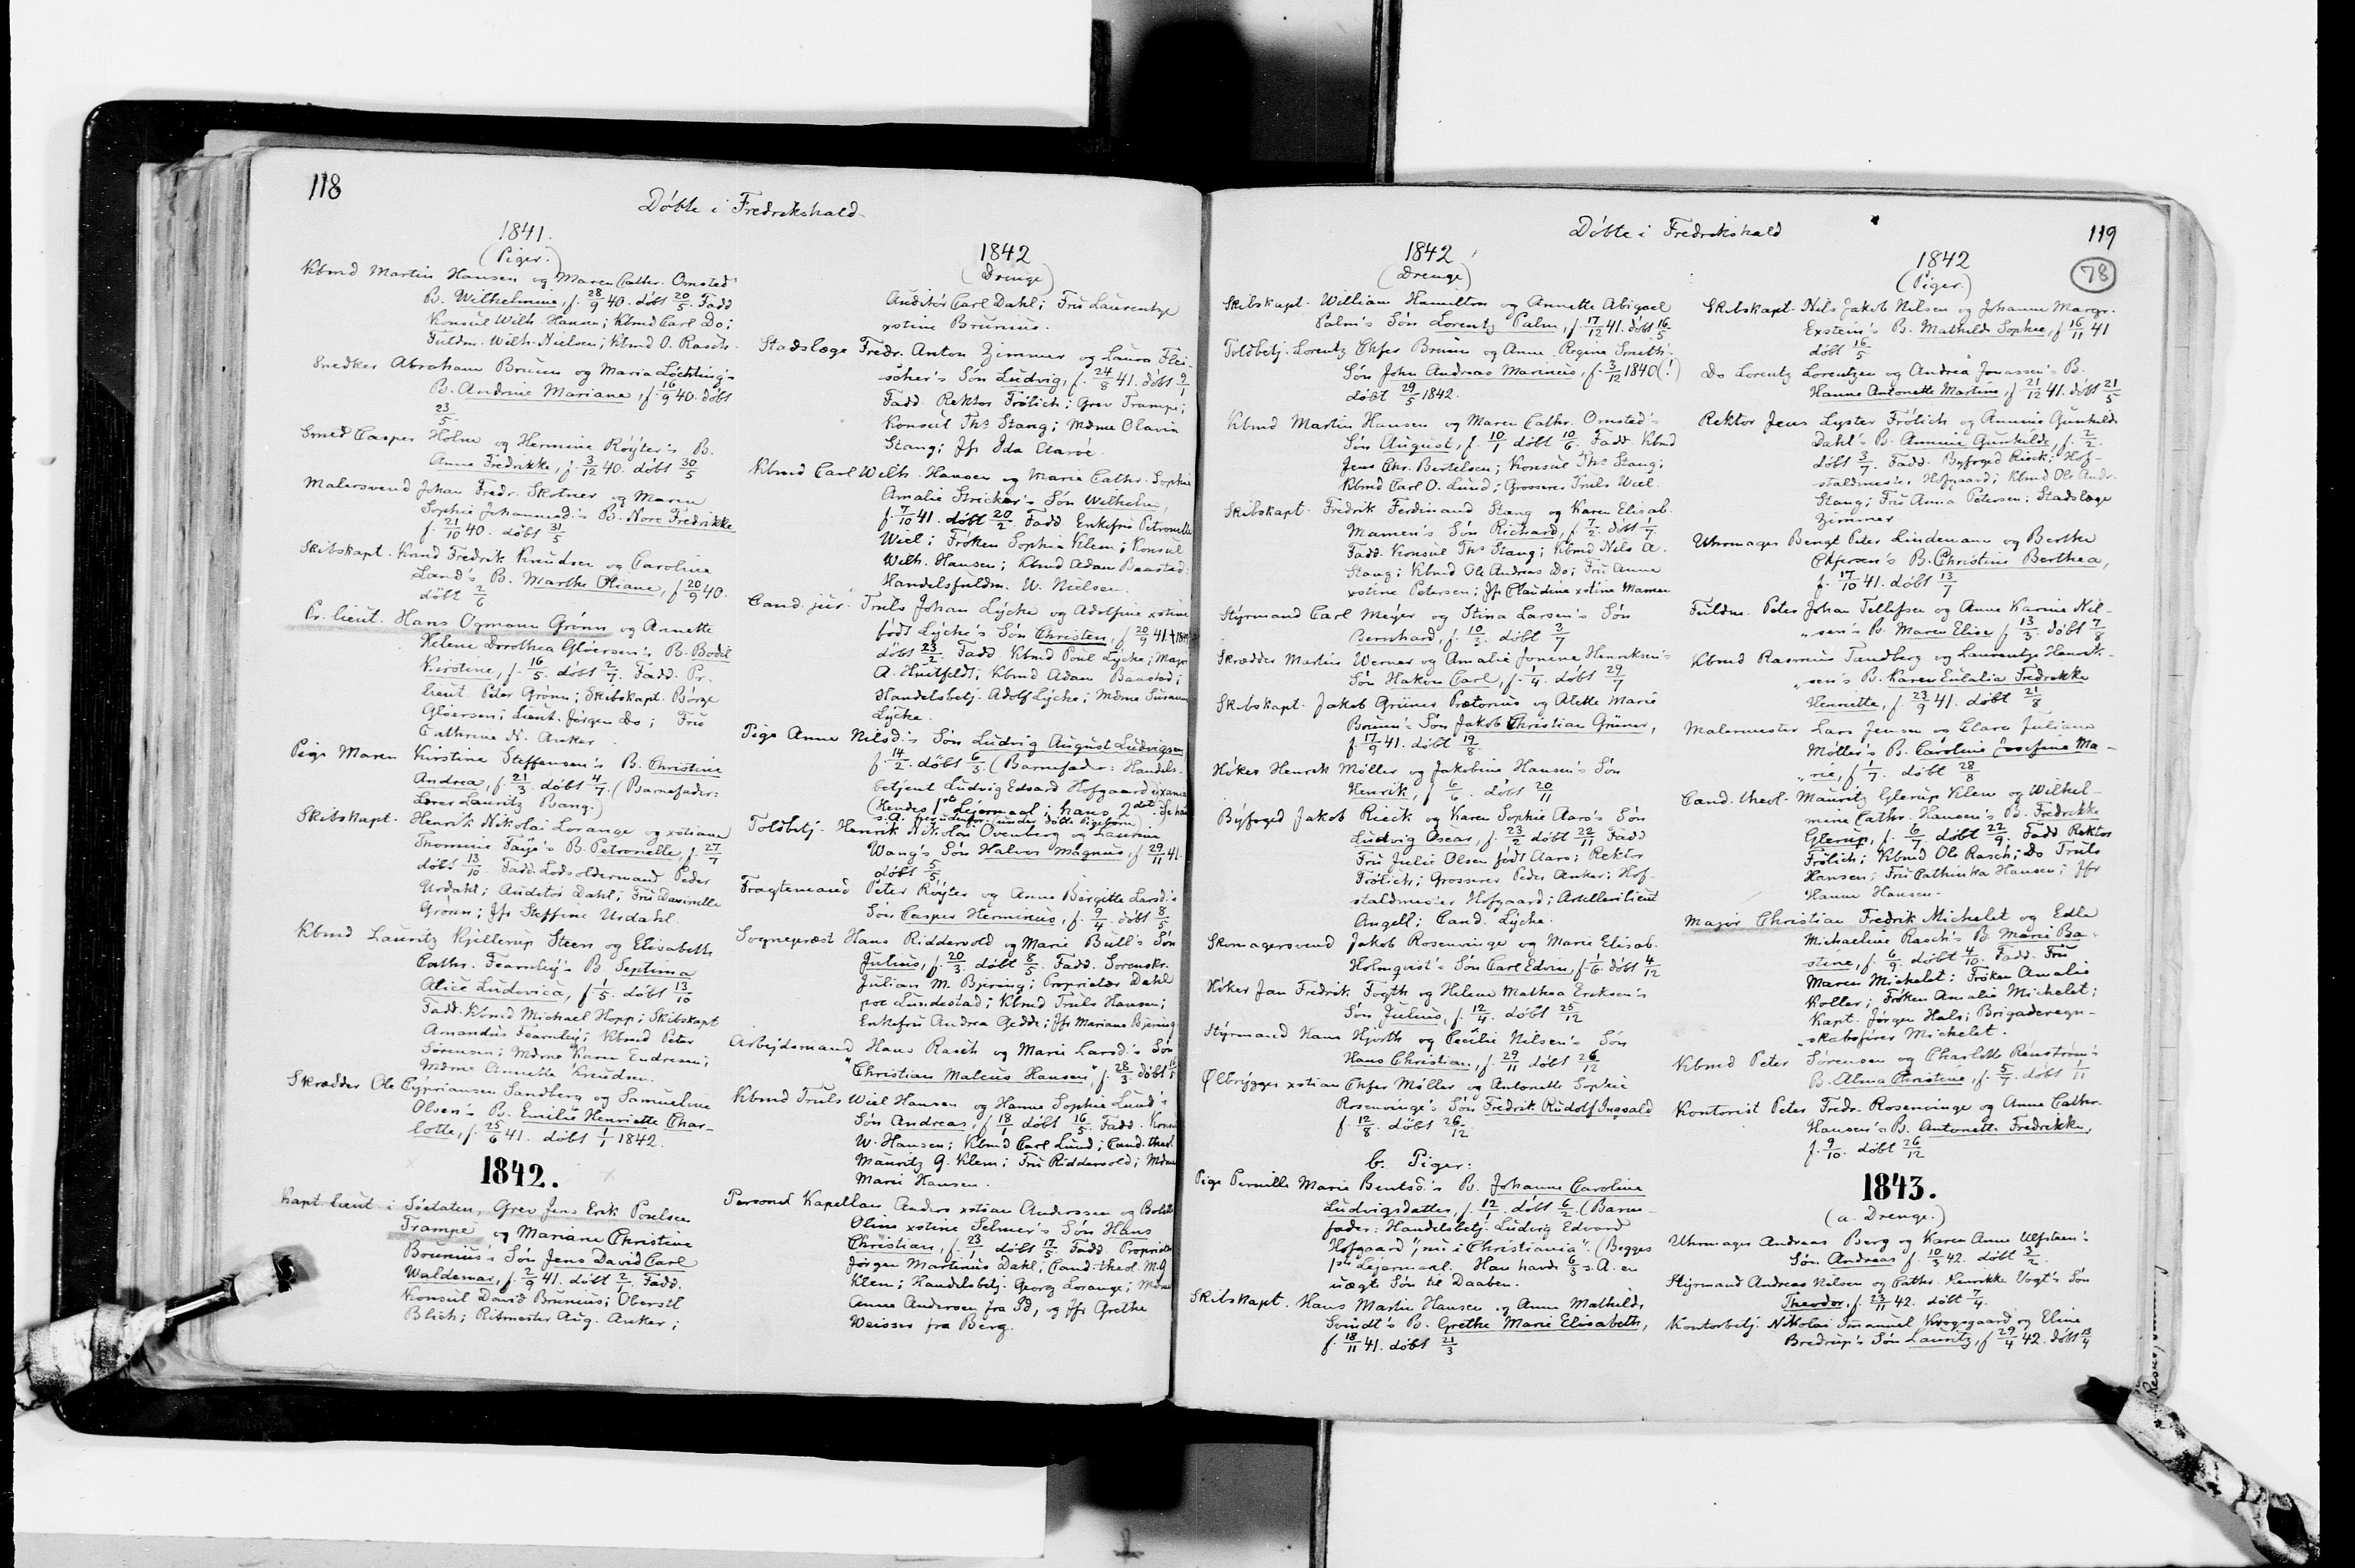 118
Döbte i Fredrikshald
1841.
(Piger.)
Kbmd Martin Hansen og Maren Cathr. Omsted
B. Wilhelmine, f. 28/9 40. döbt 20/5. Fadd
Konsul Wilh. Hansen; Kbmd Carl Do;
Fuldm. Wilh. Nielsen; Kbmd O. Rasch.
Snedker Abraham Bruun og Maria Löchting's
B. Andrine Mariane, f. 16/9 40. döbt
23/5.
Smed Casper Holm og Hermine Röyter's B.
Anne Fredrikke, f. 3/12 40. döbt 30/5
Malersvend Johan Fredr. Skotner og Maren
Sophie Johannesd.'s B. Nore Fredrikke
f. 21/10 40. döbt 31/5
Skibskapt. Knud Fredrik Knudsen og Caroline
Land's B. Marthe Oliane, f. 20/9 40.
döbt 2/6
Pr. lieut. Hans Ogmann Grönn og Annette
Helene Dorothea Glöersen's B. Bodil
Kirstine, f. 16/5. döbt 2/7. Fadd. Pr.
lieut. Peter Grönn; Skibskapt. Börge
Glöersen; Lieut. Jörgen Do; Fru
Cathrine N. Anker.
Pige Maren Kirstine Steffensen's B. Christine
Andrea, f. 21/3. döbt 4/7. (Barnefader:
Lærer Lauritz Bang.)
Skibskapt. Henrik Nikolai Lorange og xstiane
Thomine Faye's B. Petronelle, f. 27/7
döbt 13/10 Fadd. Lodsoldermand Peder
Urdahl; Auditör Dahl; Fru Davinelle
Grönn; Jfr Steffine Urdahl.
Kbmd Lauritz Kjellerup Steen og Elisabeth
Cathr. Fearnley's B. Septima
Alice Ludovica, f. 1/5. döbt 13/10
Fadd. Kbmd Michael Hopp; Skibskapt
Amandus Fearnley; Kbmd Peter
Sörensen; Mdme Karen Endresen;
Mdme Annette Knudsen.
Skrædder Ole Cyprianson Sandberg og Samueline
Olsen's B. Emilie Henriette Char-
lotte, f. 25/6 41. döbt 1/1 1842.
1842.
Kapt. lieut. i Söetaten, Grev Jens Erik Poulsen
Trampe og Mariane Christine
Brunius's Sön Jens David Carl
Waldemar, f. 2/9 41. döbt 2/1. Fadd.
Konsul David Brunius; Oberstl
Blich; Ritmester Aug. Anker;
1842
(Drenge)
Auditör Carl Dahl; Fru Laurentze
xstine Brunius.
Stadslæge Fredr. Anton Zimmer og Laura Flei-
scher's Sön Ludvig, f. 24/8 41. döbt 9/1
Fadd. Rektor Frölich; Grev Trampe;
Konsul Ths Stang; Mdme Olavia
Stang; Jfr Ida Aaröe.
Kbmd Carl Wilh. Hansen og Marie Cathr. Sophie
Amalie Stricker's Sön Wilhelm,
f. 7/10 41. döbt 20/2. Fadd Enkefru Petronelle
Wiel; Fröken Sophie Klem; Konsul
Wilh. Hansen; Kbmd Adam Baastad;
Handelsfuldm. W. Nielsen.
Cand. jur. Truls Johan Lÿcke og Adolfine xstine
födt Lÿcke's Sön Christen, f. 20/9 41.
döbt 23/2. Fadd Kbmd Poul Lÿcke; Major
A. Huitfeldt; Kbmd Adam Baastad;
Handelsbetj. Adolf Lÿcke; Mdme Susanne
Lÿcke.
Pige Anne Nilsd.'s Sön Ludvig August Ludvigsen
f. 14/2. döbt 6/3. (Barnefader: Handels-
betjent Ludvig Edvard Hofgaard
(Hendes 1ste Lejermaal; hans 2det.
s. A. herudenfor (under döbte Pigebörn)
Toldbetj. Henrik Nikolai Ovenberg og Laurine
Wang's Sön Halvor Magnus, f. 29/11 41.
döbt 5/5
Fragtemand Peter Röyter og Anne Birgitte Larsd.'s
Sön Casper Herminius, f. 9/4. döbt 8/5
Sognepræst Hans Riddervold og Marie Bull's Sön
Julius, f. 20/3. döbt 8/5. Fadd. Sorenskr.
Julian M. Bjering; Proprietær Dahl
paa Lundestad; Kbmd Truls Hansen;
Enkefru Andrea Gedde; Jfr Mariane Bjering
Arbejdsmand Hans Rasch og Marie Larsd.'s Sön
"Christian Maleus Hansen", f. 28/3. döbt
Kbmd Truls Wiel Hansen og Hanne Sophie Lund's
Sön Andreas, f. 18/1 döbt 16/5. Fadd. Konsul
W. Hansen; Kbmd Carl Lund; Cand. theol.
Mauritz G. Klem; Fru Riddervold; Mdme
Marie Hansen.
Personel Kapellan Anders xstian Anderssen og Bolette
Oline xstine Selmer's Sön Hans
Christian, f. 23/1. döbt 17/5 Fadd. Proprietær
Jörgen Martinius Dahl; Cand. theol. M.G.
Klem; Handelsbetj. Georg Lorange; Mdme
Anne Andersen fra Id, og Jfr Grethe
Weisser fra Berg.
Döbte i Fredrikshald
119
78
1842
(Drenge)
Skibskapt. William Hamilton og Annette Abigael
Palm's Sön Lorentz Palm, f. 17/12 41. döbt 16/5
Toldbetj. Lorentz Chfer Bruun og Anne Regine Smith's
Sön John Andreas Marinius, f. 3/12 1840 (!)
döbt 29/5 1842.
Kbmd Martin Hansen og Maren Cathr. Omsted's
Sön August, f. 10/1 döbt 10/6. Fadd. Kbmd
Jens Chr. Bertelsen; Konsul Ths Stang;
Kbmd Carl O. Lund; Grosserer Truls Wiel.
Skibskapt. Fredrik Ferdinand Stang og Karen Elisab.
Mamen's Sön Richard, f. 7/2. döbt 1/7.
Fadd. Konsul Ths Stang; Kbmd Nils A.
Stang; Kbmd Ole Andreas Do; Fru Anna
xstine Petersen; Jfr Claudine xstine Mamen
Styrmand Carl Meyer og Stina Larsen's Sön
Bernhard, f. 10/3. döbt 3/7
Skrædder Martin Werner og Amalie Jonine Henriksen's
Sön Hakon Carl, f. 1/4. döbt 29/7
Skibskapt. Jakob Grüner Prætorius og Alette Marie
Bruun's Sön Jakob Christian Grüner,
f. 17/9 41. döbt 19/8.
Höker Henrik Möller og Jakobine Hansen's Sön
Henrik, f. 6/6. döbt 20/11
Byfoged Jakob Rieck og Karen Sophie Aaro's Sön
Ludvig Oscar, f. 23/2 döbt 22/11 Fadd
Fru Julie Olsen födt Aaro; Rektor
Frölich; Grosserer Peder Anker; Hof-
staldmester Hofgaard; Artellerilieut
Angell; Cand. Lÿcke.
Skomagersvend Jakob Rosenvinge og Marie Elisab.
Holmqvist's Sön Carl Edvin, f. 1/6. döbt 4/12
Höker Jan Fredrik Fogth og Helene Mathea Eriksen's
Sön Julius, f. 12/4. döbt 25/12
Styrmand Hans Hjorth og Cecilie Nilsen's Sön
Hans Christian, f. 29/11 döbt 26/12
Ölbrygger xstian Chfer Möller og Antonette Sophie
Rosenvinge's Sön Fredrik Rudolf Ingvald
f. 12/8. döbt 26/12
b. Piger:
Pige Pernille Marie Bentsd.'s B. Johanne Caroline
Ludvigsdatter, f. 12/1. döbt 6/2. (Barne-
fader: Handelsbetj. Ludvig Edvard
Hofgaard, "nu i Christiania". (Begges
1ste Lejermaal. Han havde 6/3 s. A. en
uægte Sön til Daaben.
Skibskapt. Hans Martin Hansen og Anne Mathilde
Smidt's B. Grethe Marie Elisabeth,
f. 18/11 41. döbt 21/3
1842
(Piger.)
Skibskapt. Nils Jakob Nilsen og Johanne Margr.
Exstein's B. Mathilde Sophie, f. 16/11 41
döbt 16/5
Do Lorentz Lorentzen og Andrea Jonassen's B.
Hanne Antonette Martine, f. 21/12 41. döbt 21/5
Rektor Jens Lyster Frölich og Annine Gunhilde
Dahl's B. Annine Gunhilde, f. 2/2.
döbt 3/7. Fadd. Byfoged Rieck; Hof-
staldmester Hofgaard; Kbmd Ole Andr.
Stang; Fru Anna Petersen; Stadslæge
Zimmer
Uhrmager Bengt Peter Lindemann og Berthe
Chfersen's B. Christine Berthea,
f. 17/10 41. döbt 13/7
Fuldm. Peter Johan Tellefsen og Anne Karine Nil-
„sen's B. Maren Elise f. 13/3. döbt 7/8
Kbmd Rasmus Tandberg og Laurentze Henrik-
„sen's B. Karen Eulalia Fredrikke
Henriette, f. 23/9 41. döbt 21/8
Malermester Lars Jensen og Clara Juliane
Møller's B. Caroline Josefine Ma-
„rie, f. 1/7. döbt 28/8
Cand. theol. Mauritz Glerup Klem og Wilhel-
mine Cathr. Hansen's B. Fredrikke
Glerup, f. 6/7 döbt 22/9. Fadd. Rektor
Frölich; Kbmd Ole Rasch; Do Truls
Hansen; Fru Cathinka Hansen; Jfr
Hanne Hansen.
Major Christian Fredrik Michelet og Edle
Michaeline Rasch's B. Marie Ba-
stine, f. 6/9. döbt 4/10. Fadd. Fru
Maren Michelet; Fröken Amalie
Koller; Fröken Amalie Michelet;
Kapt. Jörgen Hals; Brigaderegn-
„skabsförer Michelet.
Kbmd Peter Sörensen og Charlotte Renström's
B. Alma Christine, f. 5/7. döbt 1/11
Kontorist Peter Fredr. Rosenvinge og Anne Cathr.
Hansen's B. Antonette Fredrikke,
f. 9/10. döbt 26/12
1843.
(a. Drenge.)
Uhrmager Andreas Berg og Karen Anne Ulfsten's
Sön Andreas f. 10/3 42. döbt 3/2.
Styrmand Andreas Nilsen og Cathr. Henrikke Vogt's Sön
Theodor, f. 23/11 42. döbt 7/4.
Kontorbetj. Nikolai Imanuel Krogsgaard og Eline
Bredrup's Sön Lauritz, f. 29/4 42. döbt 13/4